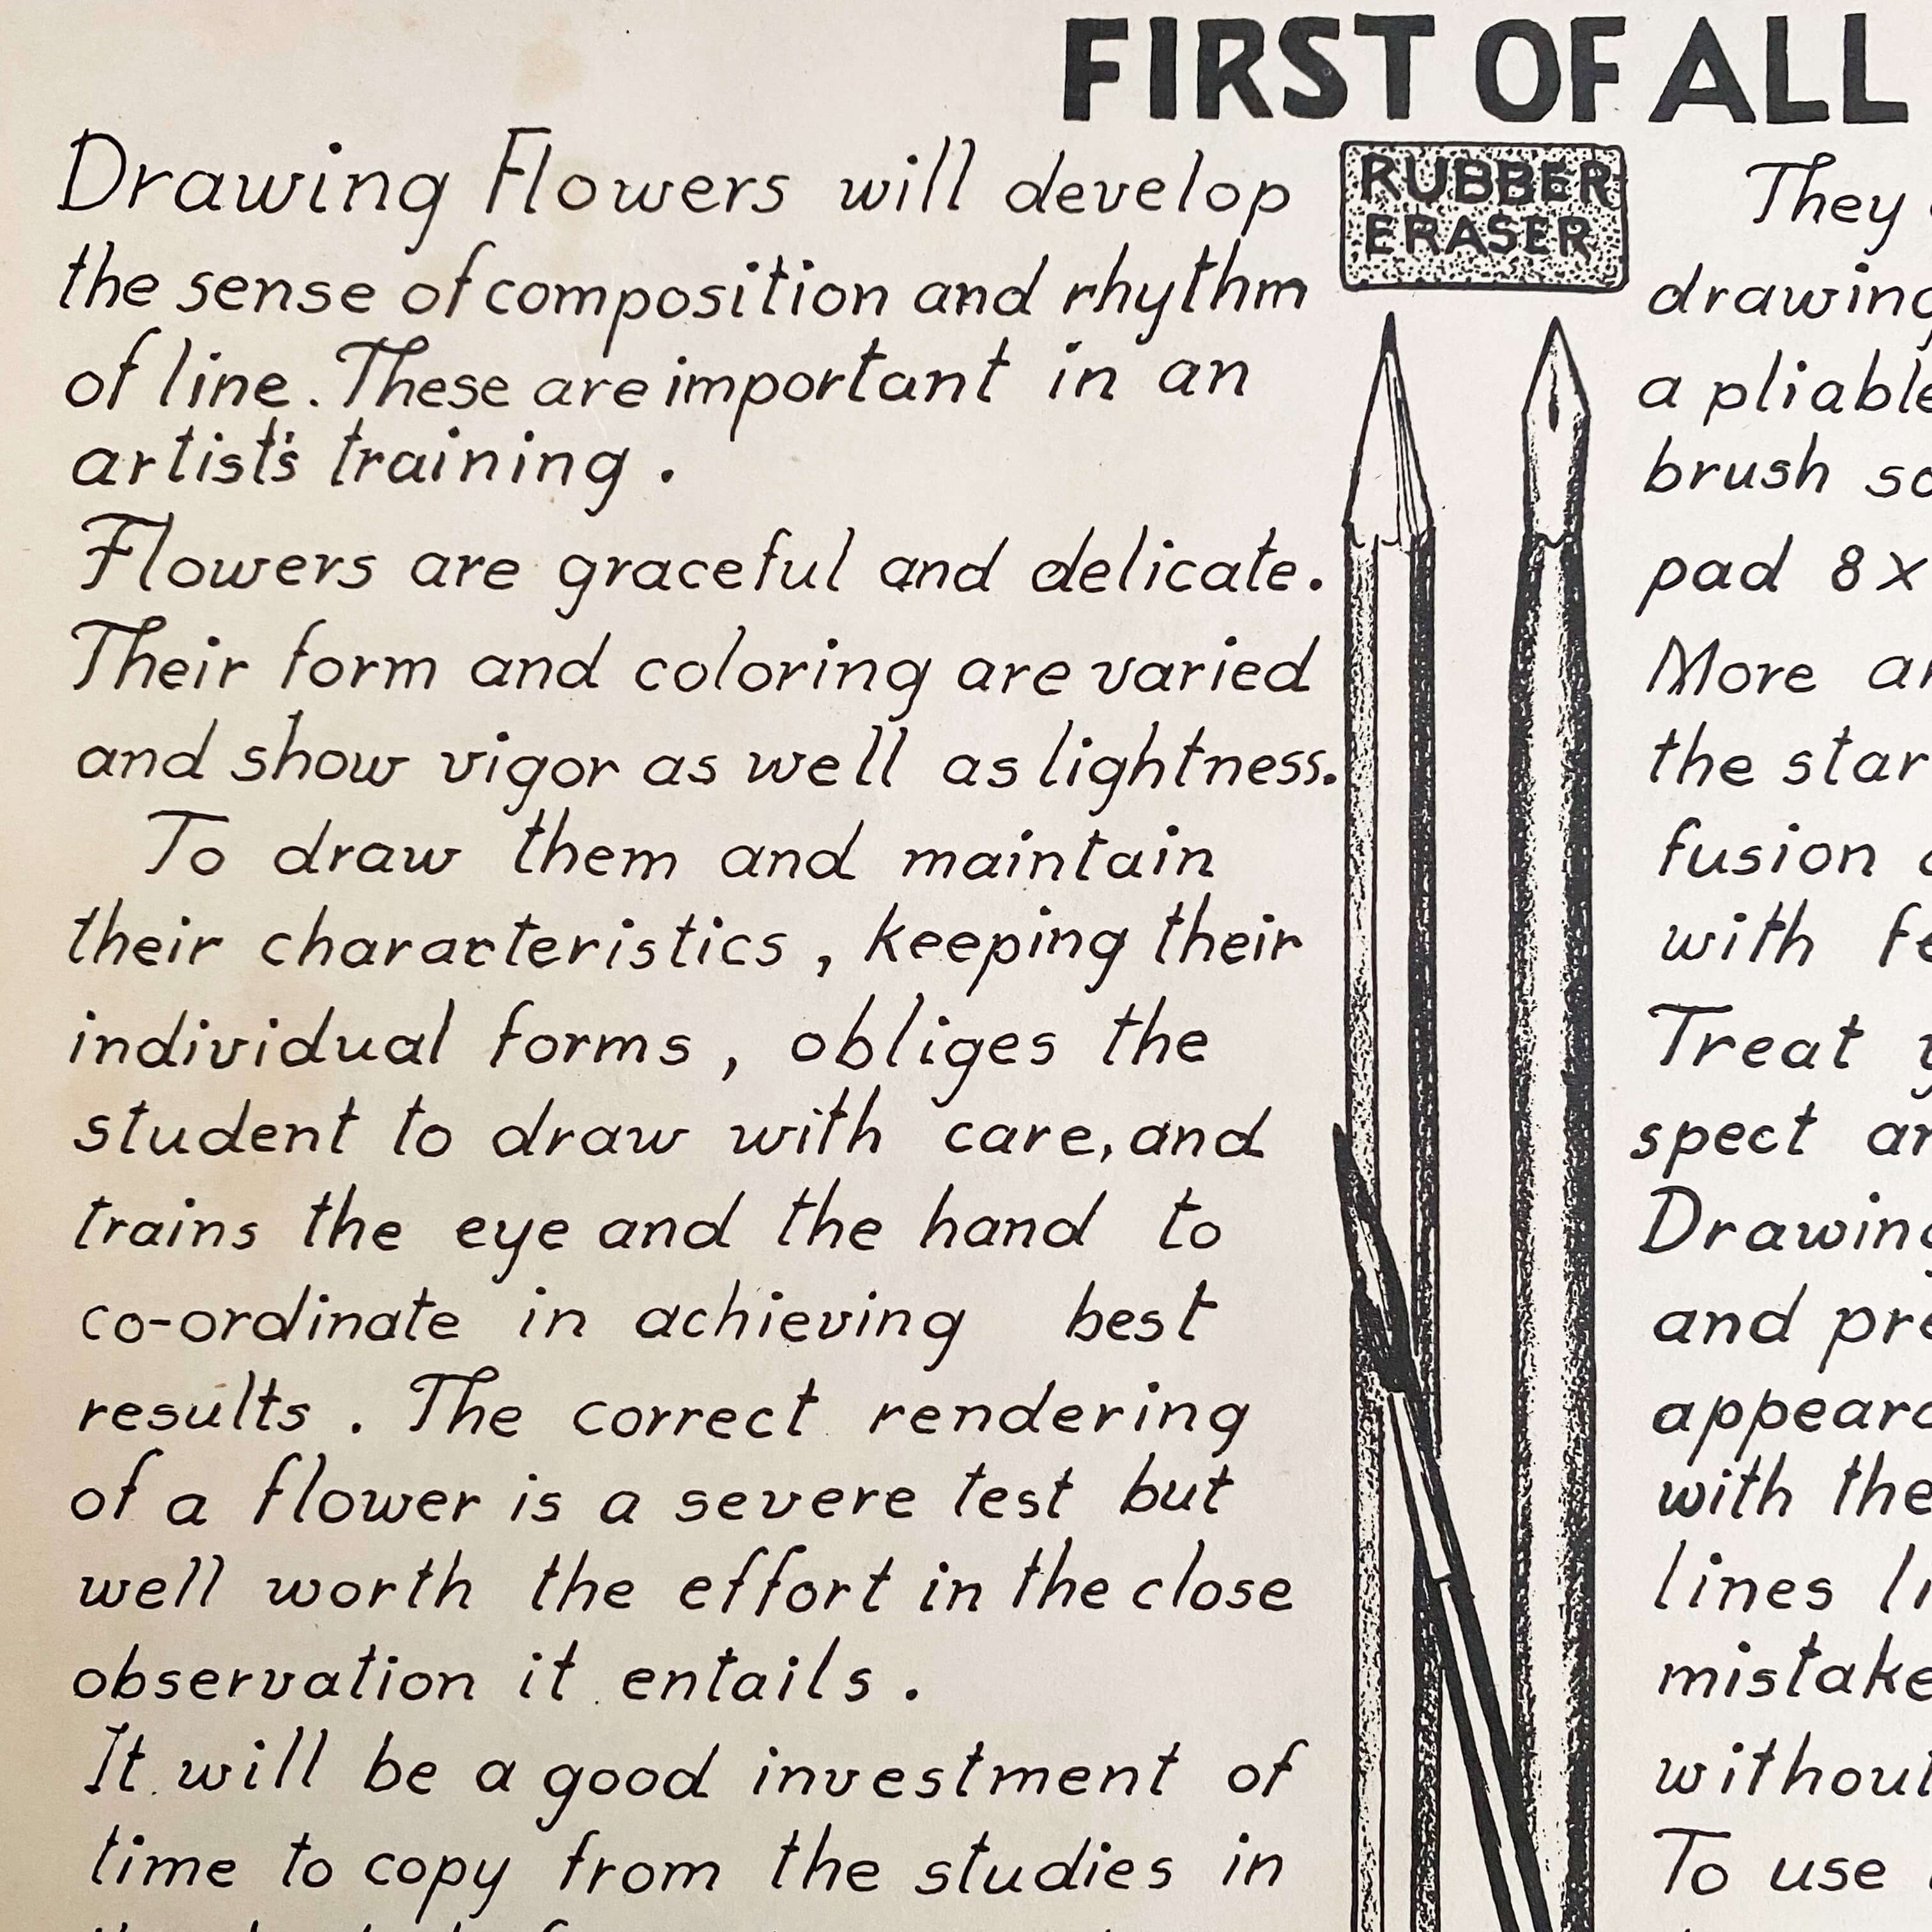 FIRST OF ALL
Drawing Flowers will develop
the sense of composition and rhythm
of line. These are important in an
artist's training.
Flowers are graceful and delicate.
Their form and coloring are varied
and show vigor as well as lightness.
To draw them and maintain
their characteristics, keeping their
individual forms, obliges the
student to draw with care, and
trains the eye and the hand to
co-ordinate in achieving best
results. The correct rendering
of a flower is a severe test but
well worth the effort in the close
observation it entails.
It will be a good investment of
time to copy from the studies in
RUBBER
ERASER
They
drawing
a pliable
brush
pad 8 x
More
the
fusion
with
Treat
spect
Drawing
and
with the
lines
mistake
without
To use